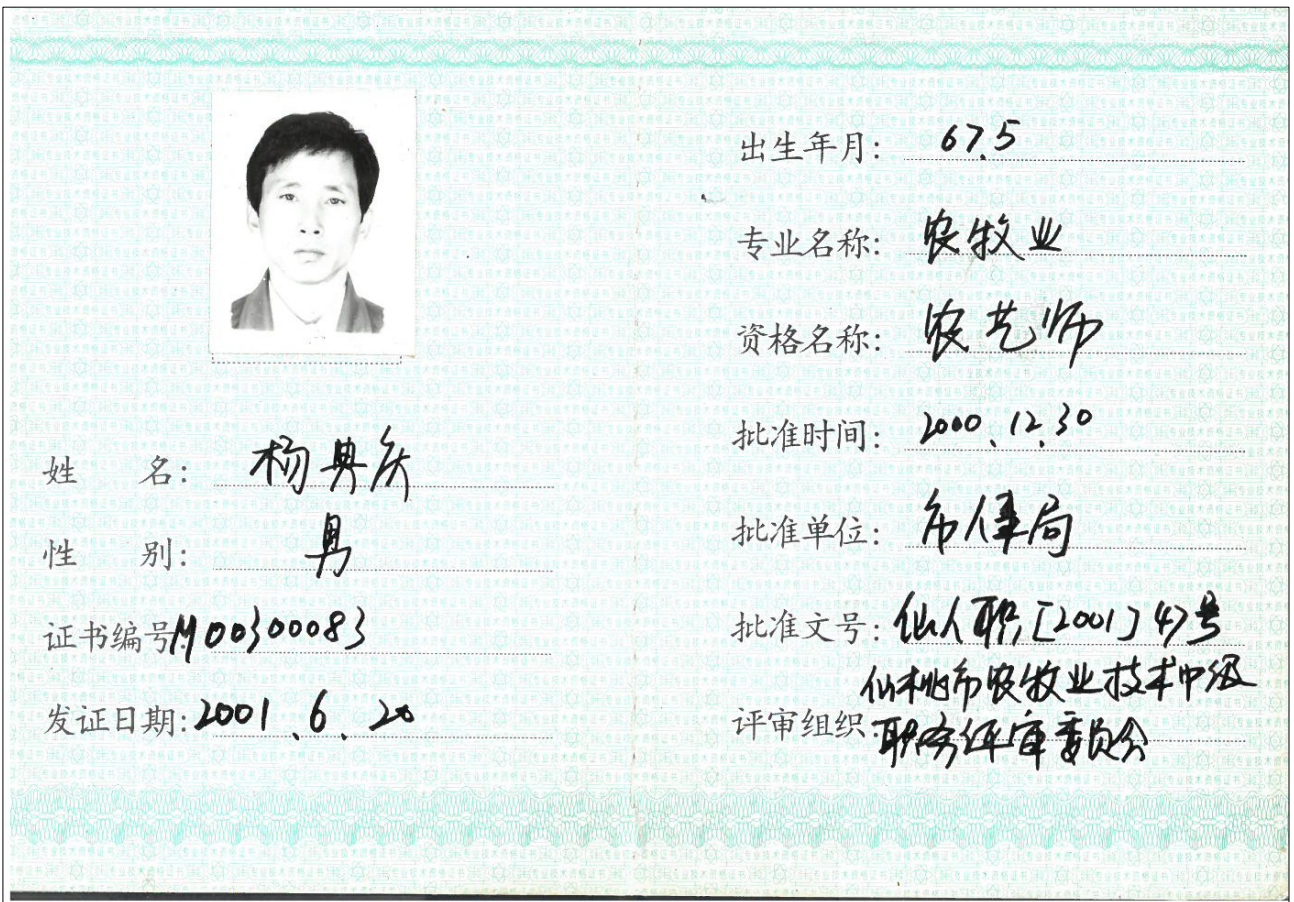 姓 名：杨典庆
性 别：男
证书编号 M00300083
发证日期：2001.6.20
出生年月：67.5
专业名称：农牧业
资格名称：农艺师
批准时间：2000.12.30
批准单位：市 局
批准文号：仙人职[2001]47号
仙桃市农牧业技术中级
评审组织：职务评审委员会